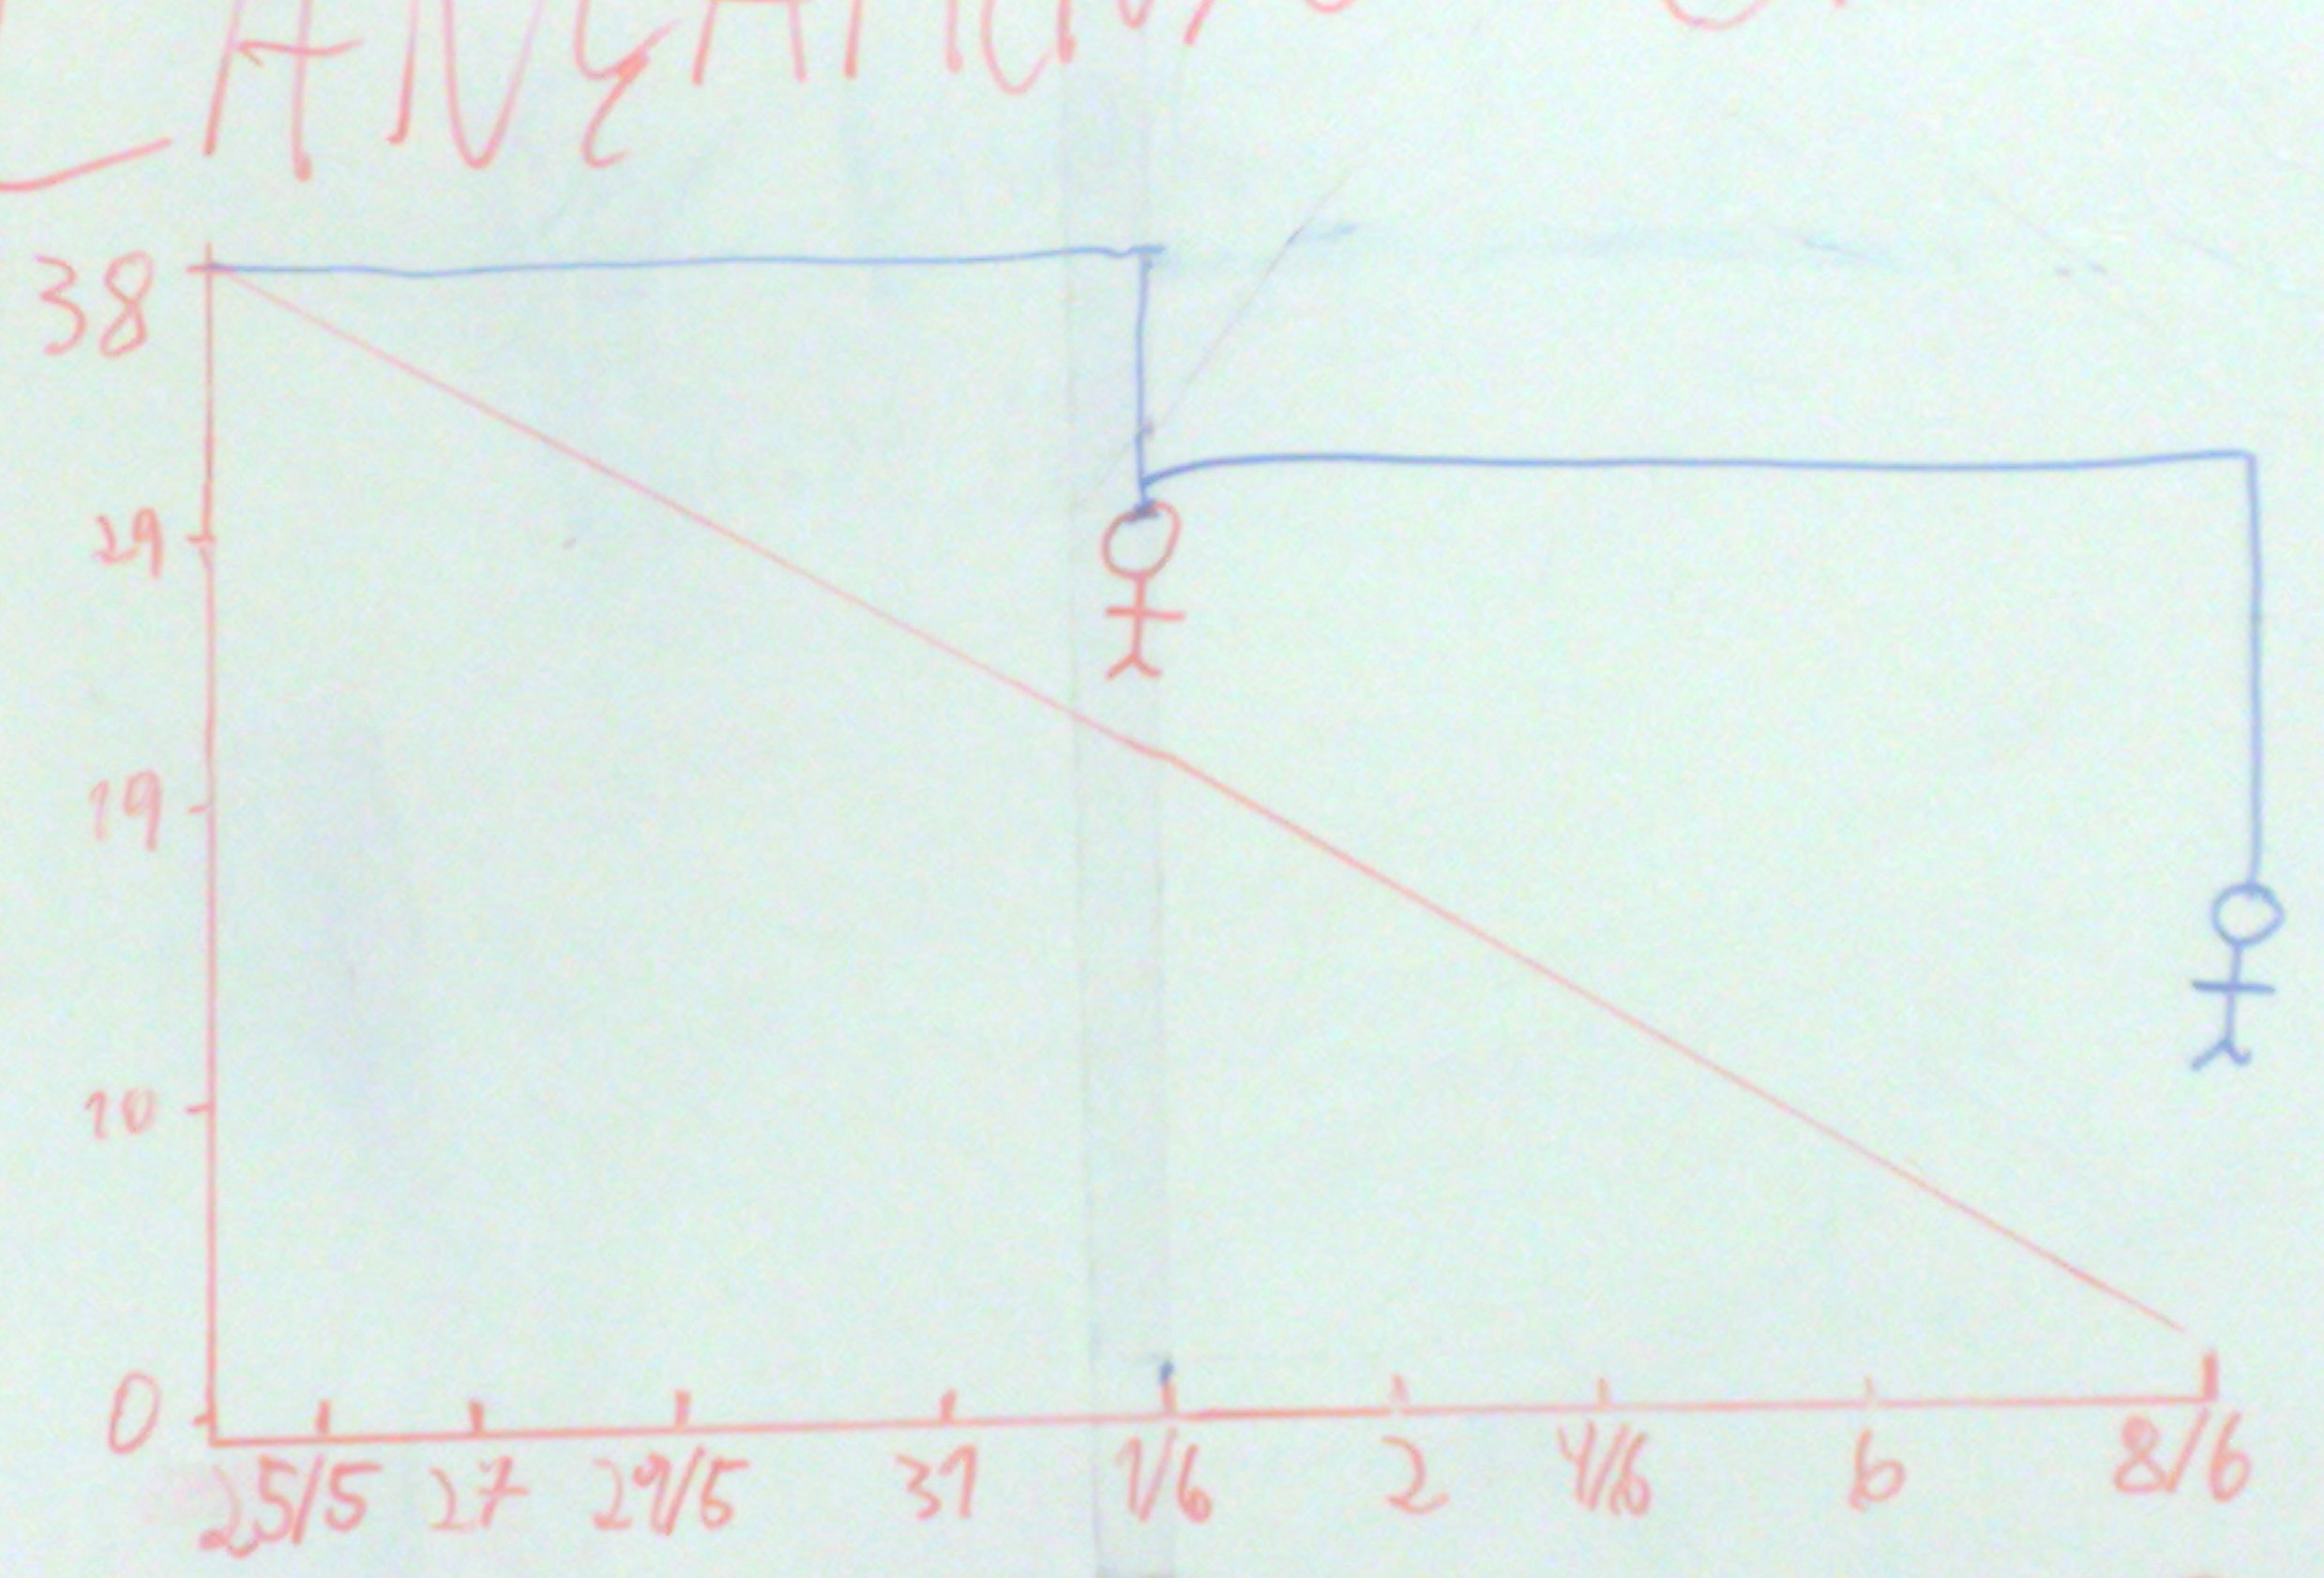 38
29
19
10
0
25/5 27 29/5 31 1/6 2 4/6 6 8/6